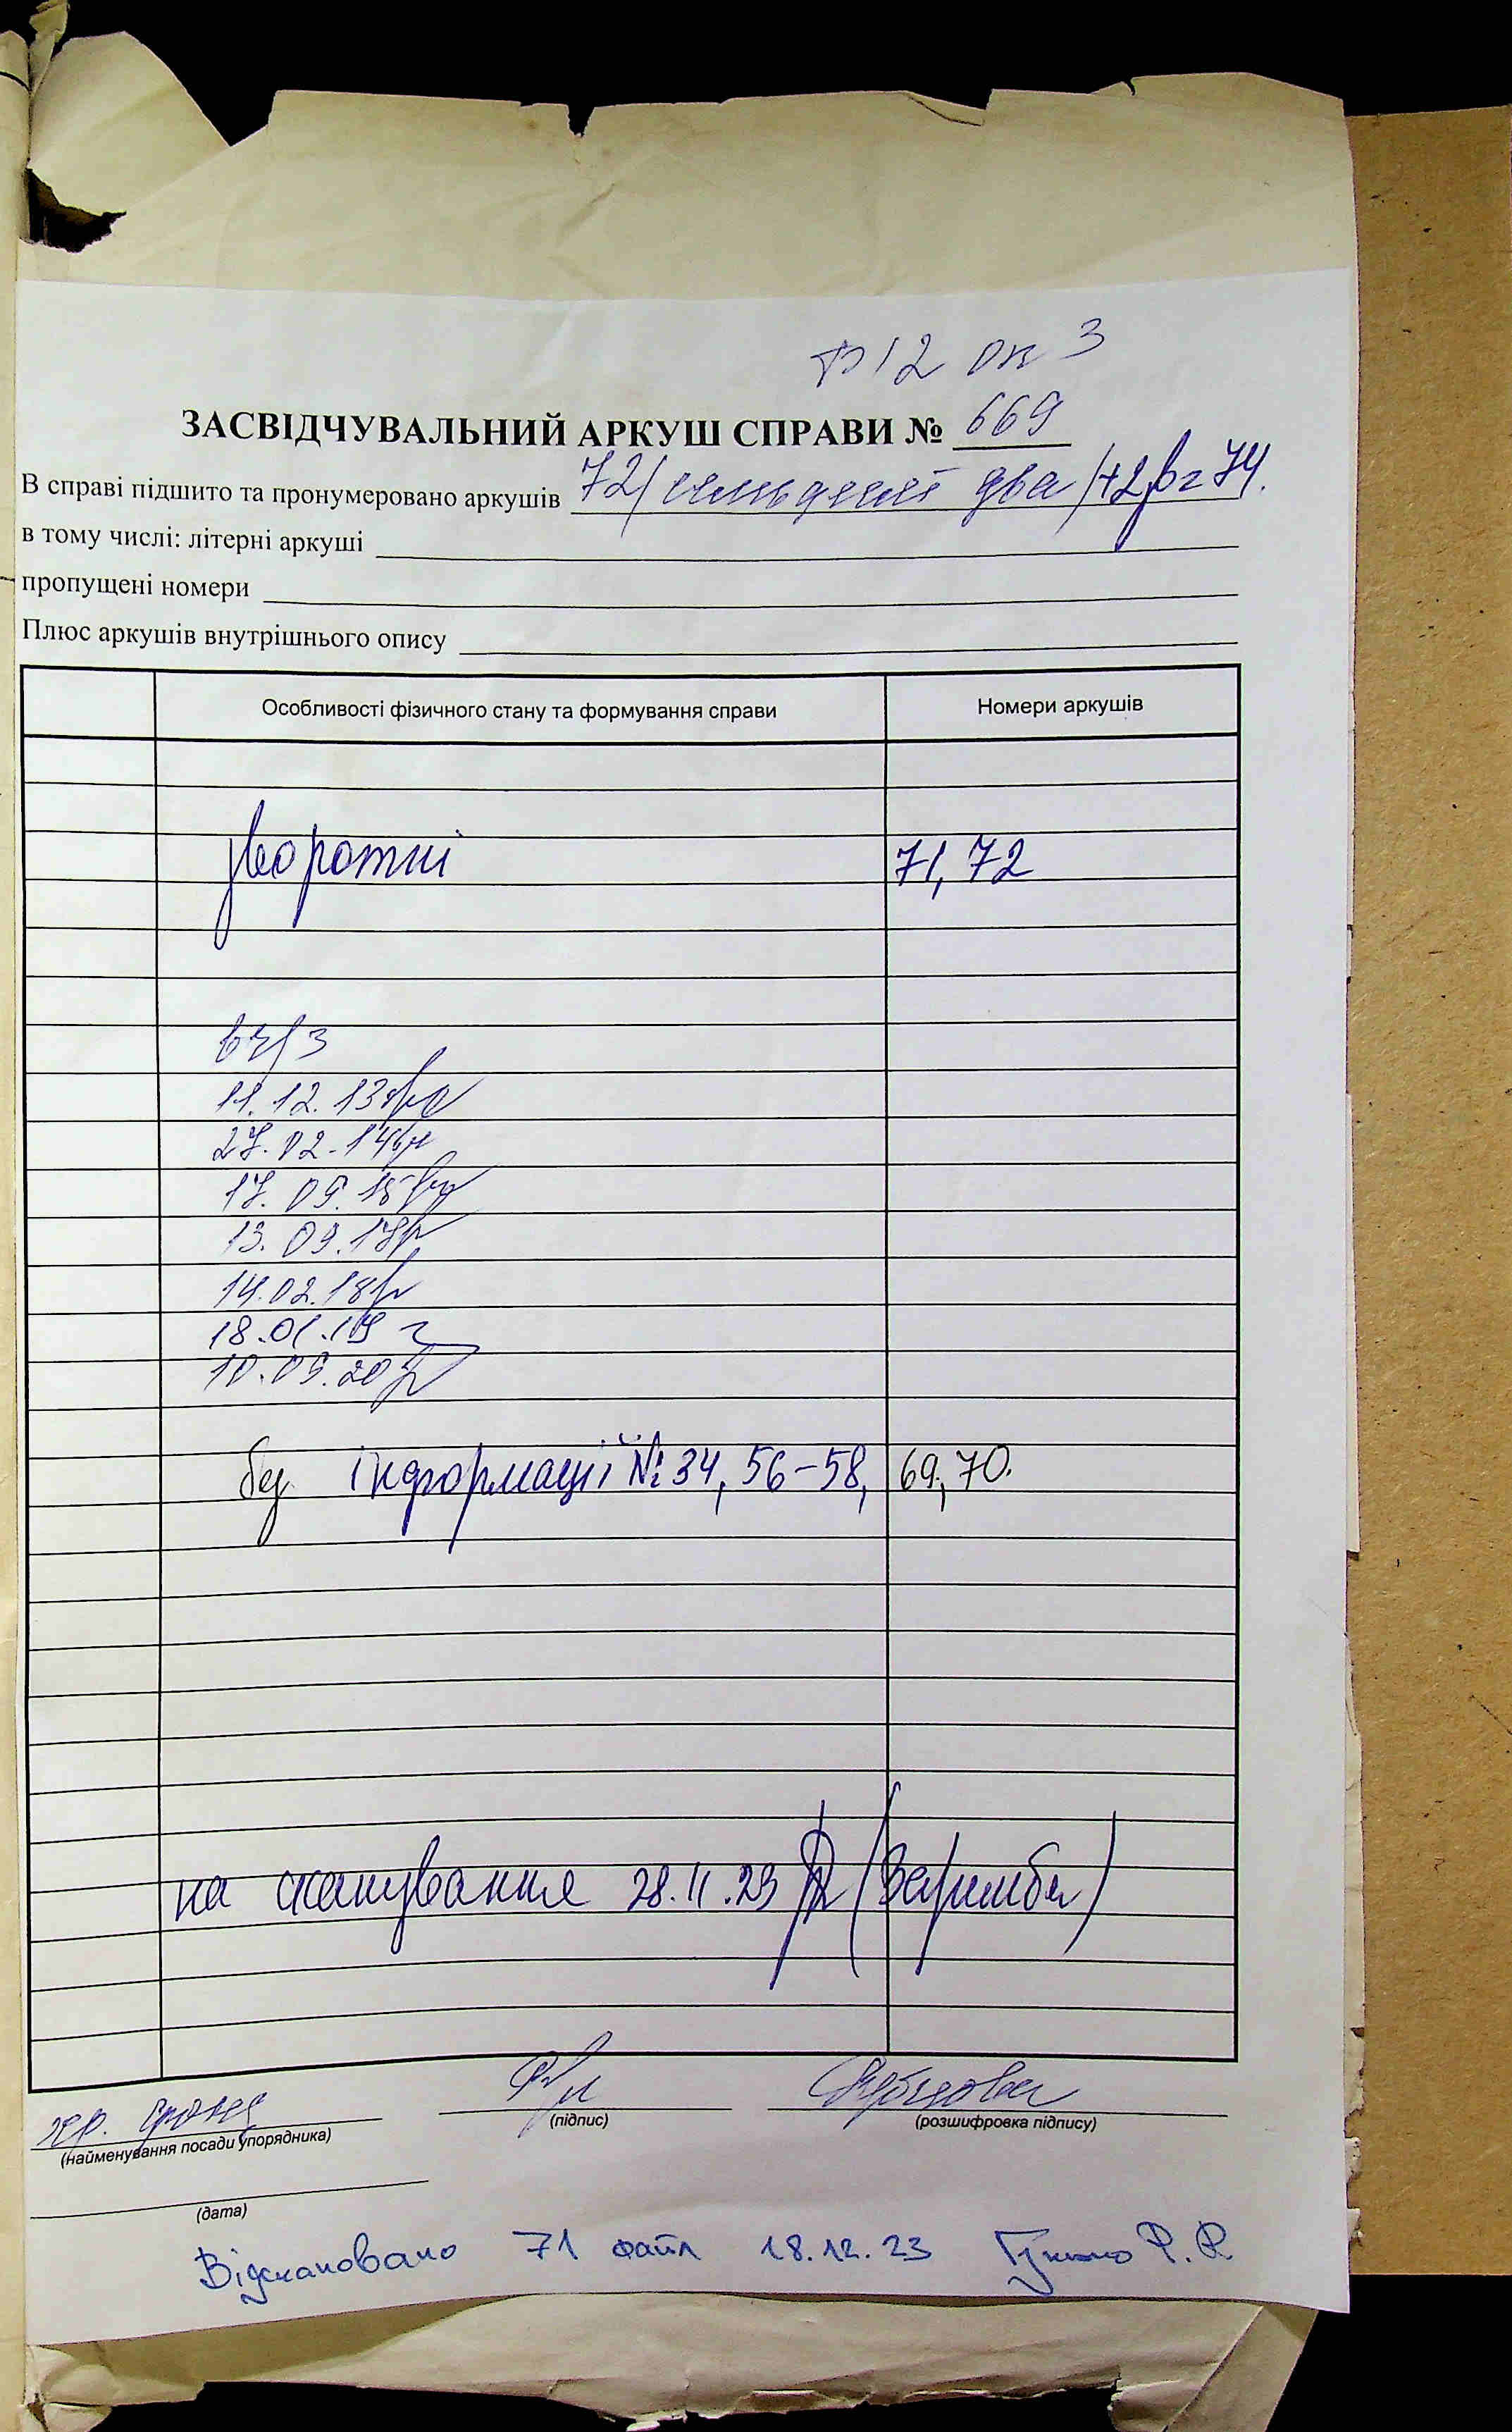 Ф 12 оп 3
ЗАСВІДЧУВАЛЬНИЙ АРКУШ СПРАВИ № 669
В справі підшито та пронумеровано аркушів 72/ сімдесят два /+2 = 74.
в тому числі: літерні аркуші
пропущені номери
Плюс аркушів внутрішнього опису
Особливості фізичного стану та формування справи Номери аркушів
зворотні 71, 72
11.12.13
27.02.14
17.09.15
13.09.17
14.02.18
18.01.19
10.09.20
без інформації № 34, 56-58, 69, 70.
на сканування 28.11.23
(найменування посади упорядника) (підпис) (розшифровка підпису)
(дата)
Відскановано 71 файл 18.12.23